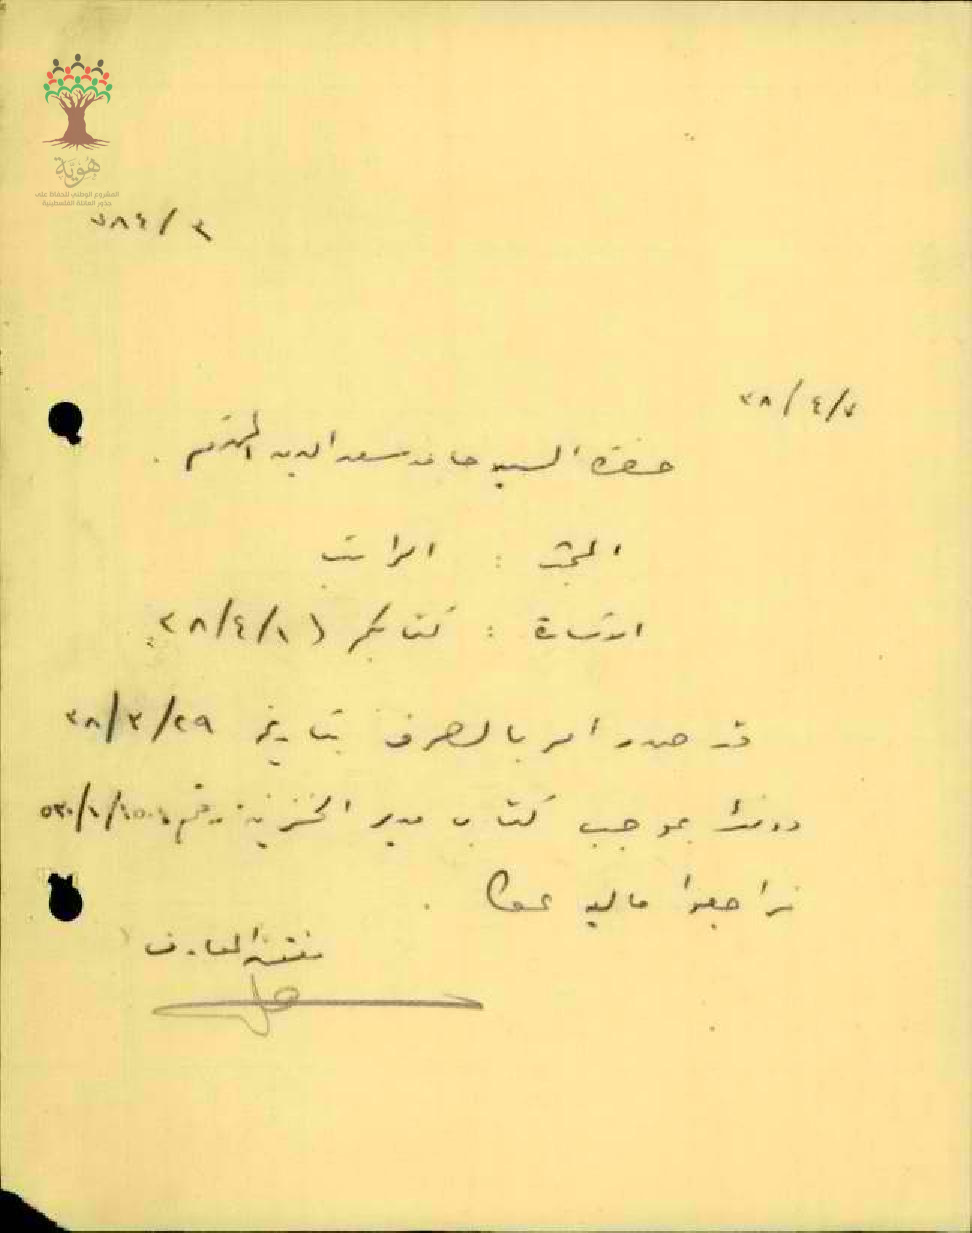 هوية
المشروع الوطني للحفاظ على
جذور العائلة الفلسطينية
٣٨٤/٣
٣٨/٤/٧
حضرة السيد حامد سعد الدين المحترم .
المبحث : الراتب
الاشارة : كتابكم ٣٨/٤/١
قد صدر امر بالصرف بتاريخ ٣٨/٣/٢٩
وذلك بموجب كتاب مدير الخزينة رقم
راجعوا مالية عكا .
مفتش المعارف